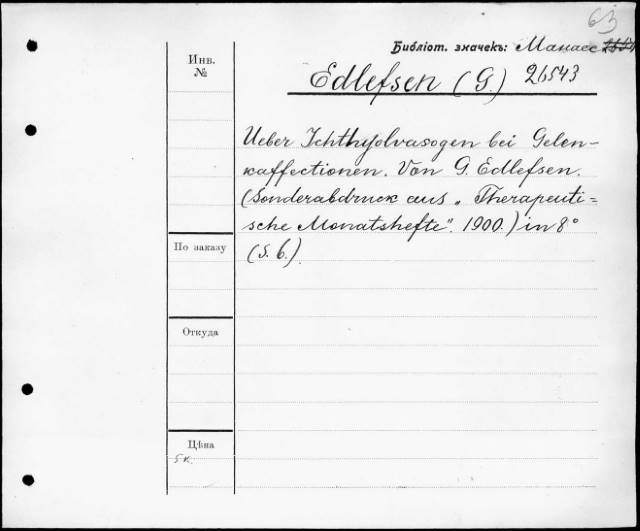 63
Библіот. значекъ: Манасс
Инв.
№
Edlefsen (G.) 26543
Ueber Ichthyolvasogen bei Gelen-
kaffectionen. Von G. Edlefsen.
(Sonderabdruck aus „Therapeuti=
sche Monatshefte". 1900.) in 8°
(S. 6.)
По заказу
Откуда
Цѣна
5 к.